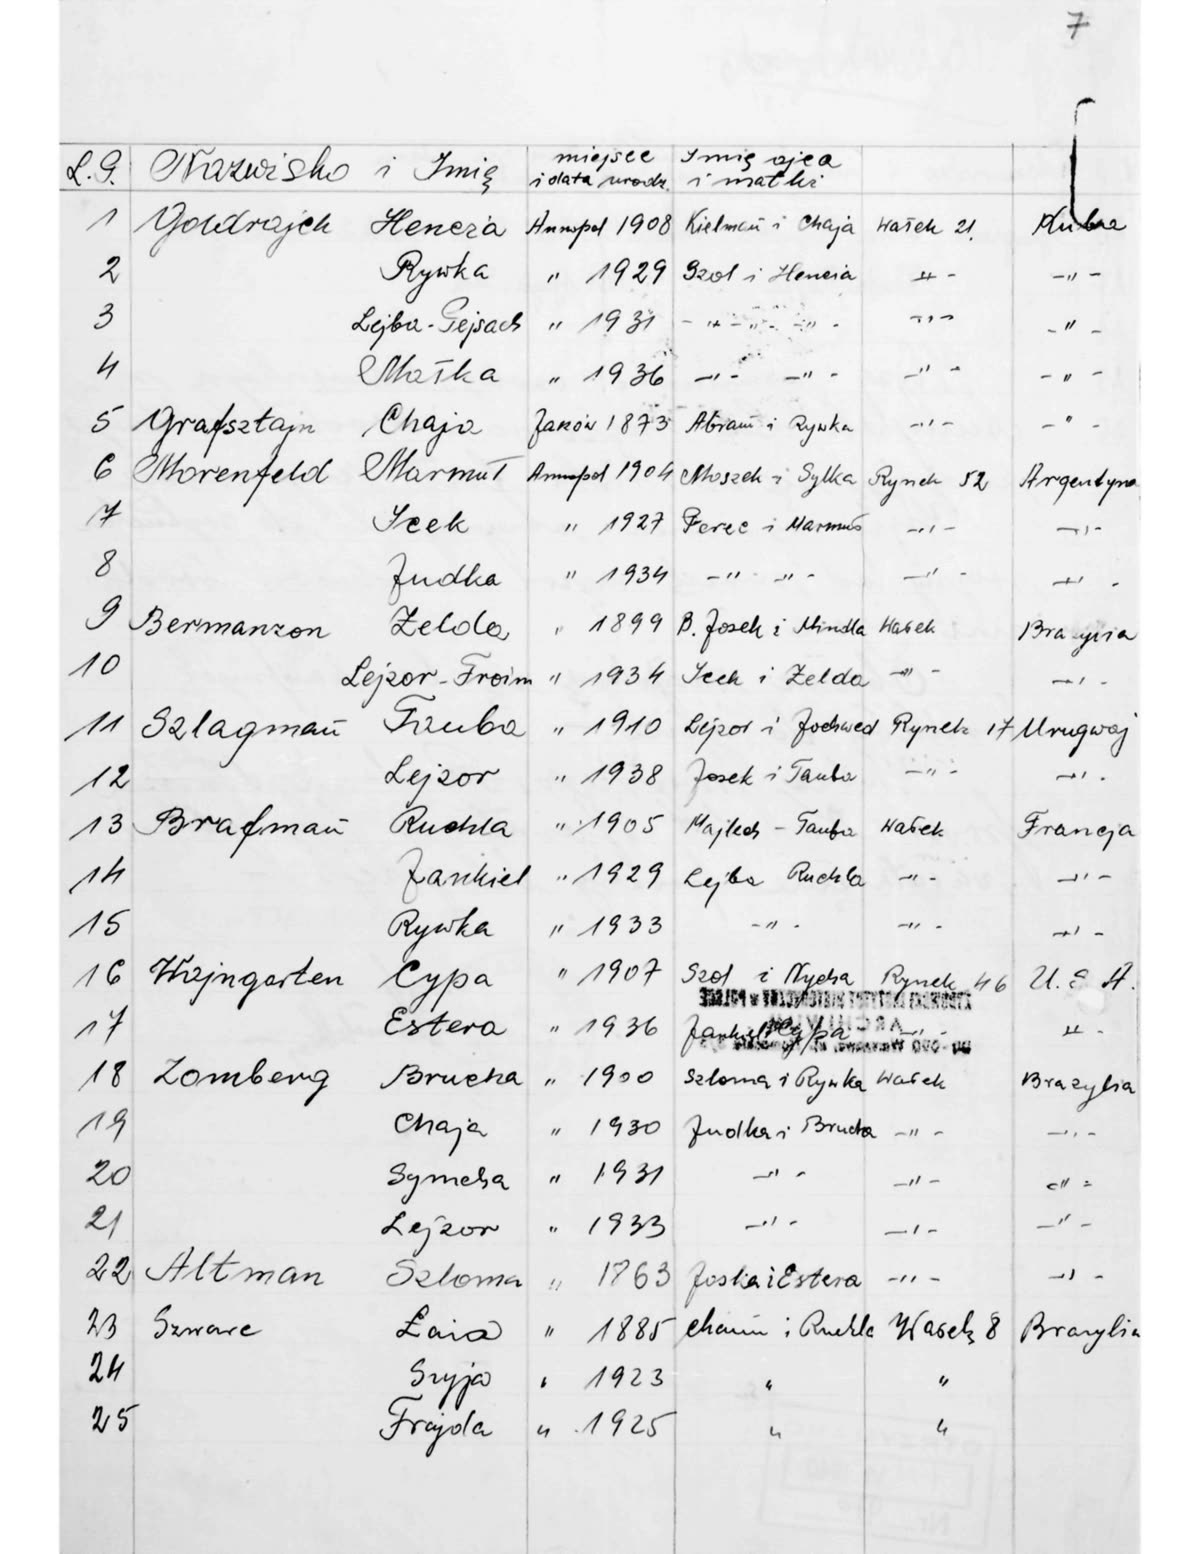 7
L.P. Nazwisko i Imię miejsce i data urodz. Imię ojca i matki
1 Goldrajch Hencia Annopol 1908 Kielman i Chaja Wałek 21. Kuba
2 Rywka " 1929 Szol i Hencia -"- -"-
3 Lejba-Pejsach " 1931 -"- -"- -"- -"-
4 Małka " 1936 -"- -"- -"- -"-
5 Grafsztajn Chaja Janów 1873 Abram i Rywka -"- -"-
6 Morenfeld Marmuł Annopol 1904 Moszek i Sylka Rynek 52 Argentyna
7 Icek " 1927 Perec i -"- -"-
8 Judka " 1934 -"- "- -"- -"-
9 Bermanzon Zelda " 1899 B. Josek i Mindla Wałek Brazylia
10 Lejzor-Froim " 1934 Icek i Zelda -"- -"-
11 Szlagman Tauba " 1910 Lejzor i Jochwed Rynek 17 Urugwaj
12 Lejzor " 1938 Josek i Tauba -"- -"-
13 Brafman Ruchla " 1905 Majlech - Tauba Wałek Francja
14 Jankiel " 1929 Lejba Ruchla -"- -"-
15 Rywka " 1933 -"- -"- -"-
16 Wajngarten Cypa " 1907 Szol i Rynek 46 U.S.A.
17 Estera " 1936 Jankiel Cypa -"- -"-
18 Zomberg Brucha " 1900 Szloma i Rywka Wałek Brazylia
19 Chaja " 1930 Judka i Brucha -"- -"-
20 Symcha " 1931 -"- -"- -"-
21 Lejzor " 1933 -"- -"- -"-
22 Altman Szloma " 1863 Joska i Estera -"- -"-
23 Szwarc Łaia " 1885 Chaim i Ruchla Wałek 8 Brazylia
24 Szyja " 1923 " "
25 Frajda " 1925 " "